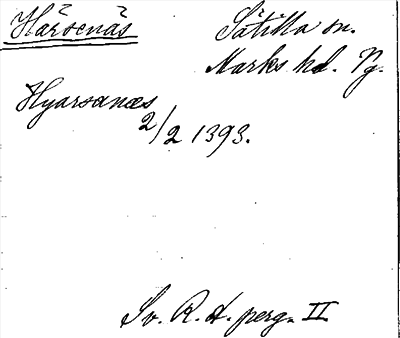 Härsenäs
Sätilla sn.
Marks hd. Vg.
Hyarsanæs
2/2 1393.
Sv. R. A. perg. II